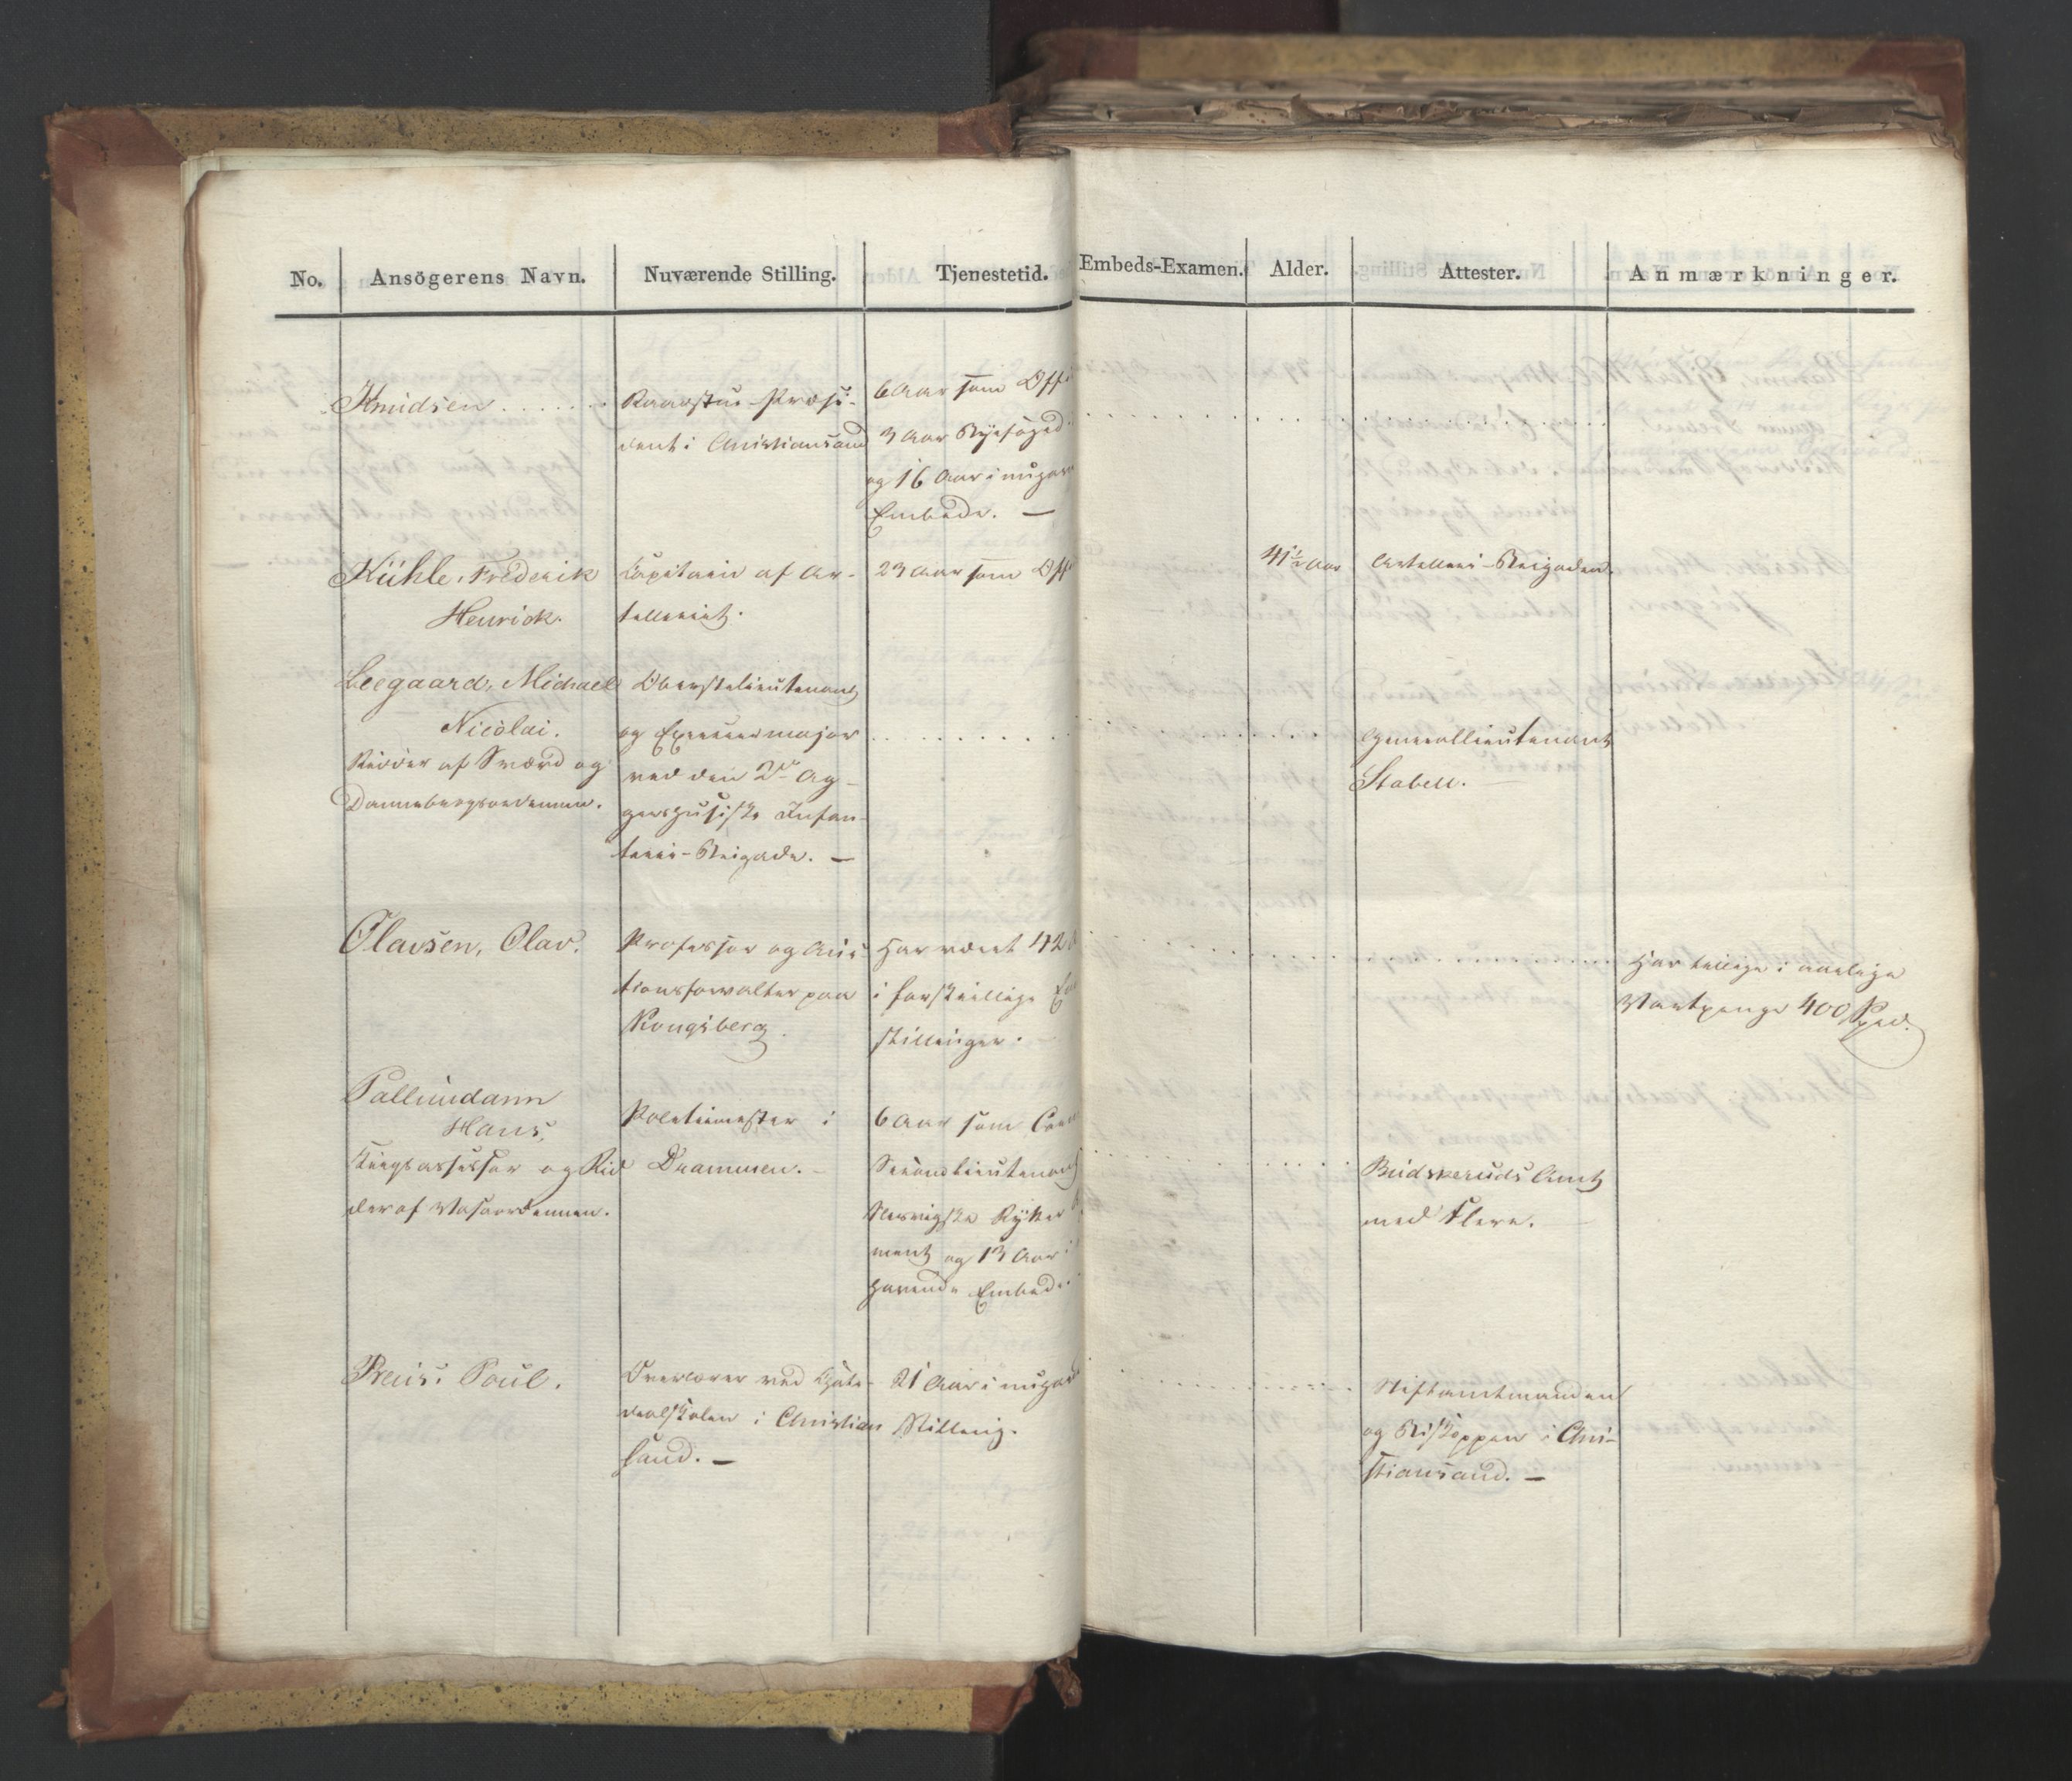 No. Ansögerens Navn. Nuværende Stilling. Tjenestetid. Embeds-Examen. Alder. Attester. Anmærkninger.
Knudsen
Raadstue-Præsi-
dent i Christiansand
6 Aar som Offi
3 Aar Byefoged
og 16 Aar i nuhav
Embede. —
Kühle, Frederik
Henrick.
Capitain af Ar-
telleriet.
23 Aar som Offi
41½ Aar
Artelleri-Brigaden.
Leegaard, Michael
Nicolai.
Ridder af Sværd og
Dannebrogsordenen.
Oberstelieutenant
og Exerceermajor
ved den 2den Ag-
gershusiske Infan-
teri-Brigade. —
Generallieutenant
Stabell.
Olavsen, Olav.
Professor og Auc-
tionsforvalter paa
Kongsberg.
Har været 42
i forskiellige
stillinger.
Har tillige i aarlige
Vartpenge 400
Pallundann
Hans,
Krigsassessor og Rid
der af Vasaordenen.
Politiemester i
Drammen.
6 Aar som
Secondlieutenant
Slesvigske Rytter
ment og 13 Aar i
havende Embede.
Buskeruds Amt
med Flere.
Preus, Poul.
Overlærer ved Cathe-
dralskolen i Christian
sand. —
21 Aar i nuhav
Stilling.
Stiftamtmanden
og Biskoppen i Chri-
stiansand. —